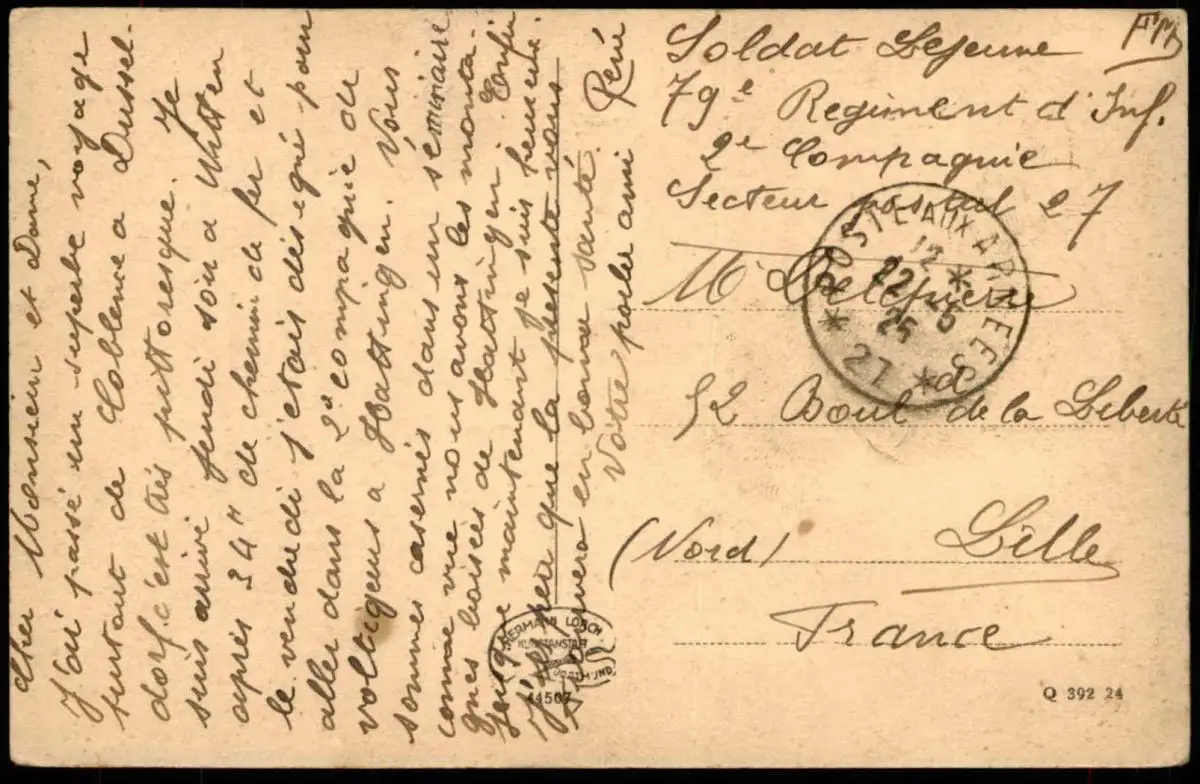 Cher Monsieur et Dame,
J'ai passé un superbe voyage
surtout de Coblence a Dussel-
dorf c'est très pittoresque. Je
suis arrivé jeudi soir a Witten
après 34 h de chemin de fer et
le vendredi j'étais désigné pour
aller dans la 2e compagnie de
voltigeurs a Hattingen. Vous
sommes casernés dans un séminaire
comme vue nous avons les monta-
gnes boisées de Hattingen. Enfin
maintenant je suis
J'espère que la présente vous
trouvera en bonne santé.
Votre poilu ami René
FM
Soldat Lejeune
79e Regiment d'Inf.
2e Compagnie
Secteur postal 27
Mr
52 Boul de la Liberté
(Nord) Lille
France
POSTE AUX ARMEES
12 *
22 - 5
25
* 27 *
HERMANN LORCH
KUNSTANSTALT
DORTMUND
44507
Q 392 24